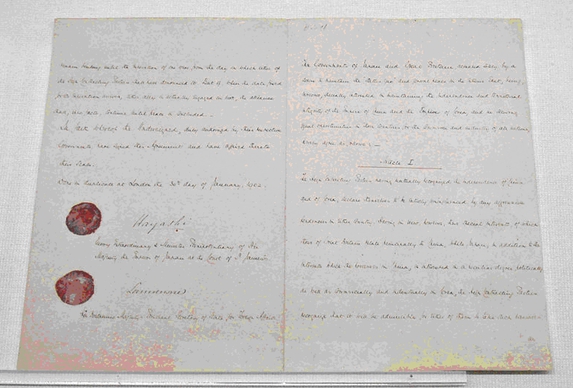 the expiration of one year from the day on which either of
the High Contracting Parties shall have denounced it. But if, when the date fixed
for its expiration arrives, either ally is actually engaged in war, the alliance
shall, ipso facto, continue until peace is concluded.
In faith whereof the Undersigned, duly authorized by their respective
Governments, have signed this Agreement and have affixed thereto
their Seals.
Done in duplicate at London the 30th day of January, 1902.
Hayashi
Envoy Extraordinary & Minister Plenipotentiary of His
Majesty the Emperor of Japan at the Court of St. James's
Lansdowne
His Britannic Majesty's Principal Secretary of State for Foreign Affairs
The Governments of Japan and Great Britain, actuated solely by a
desire to maintain the status quo and general peace in the extreme East, being
moreover specially interested in maintaining the independence and territorial
integrity of the Empire of China and the Empire of Corea, and in securing
equal opportunities in those countries for the commerce and industry of all nations,
hereby agree as follows:—
Article I.
The High Contracting Parties having mutually recognized the independence of China
and of Corea, declare themselves to be entirely uninfluenced by any aggressive
tendencies in either country. Having in view, however, their special interests, of which
those of Great Britain relate principally to China, while Japan, in addition to the
interests which she possesses in China, is interested in a peculiar degree politically
as well as commercially and industrially in Corea, the High Contracting Parties
recognize that it will be admissible for either of them to take such measures